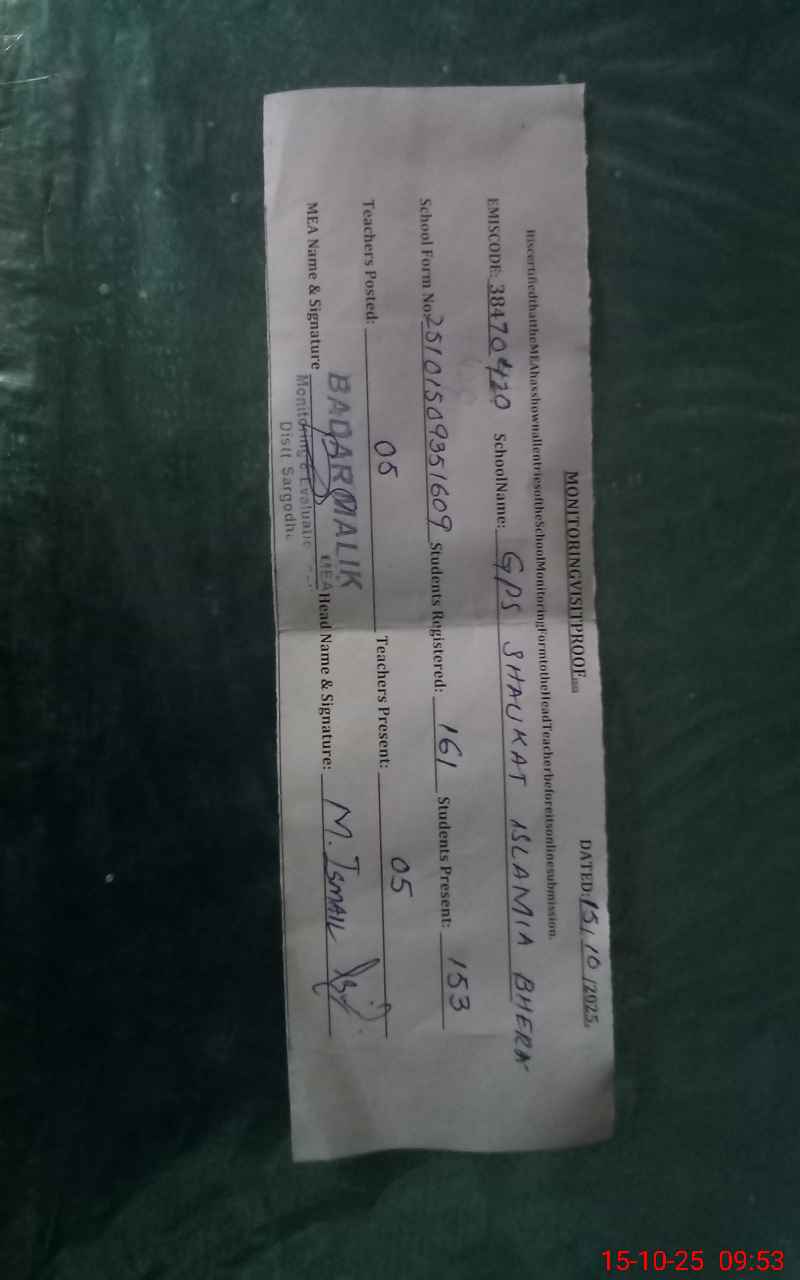 MONITORINGVISITPROOF
DATED:15/10/2025.
ItiscertifiedthattheMEAhasshownallentriesoftheSchoolMonitoringFormtotheHeadTeacherbeforeitsonlinesubmission.
EMISCODE: 38470420 SchoolName: GPS SHAUKAT ISLAMIA BHERA
School Form No: 25101509351609 Students Registered: 161 Students Present: 153
Teachers Posted: 05 Teachers Present: 05
MEA Name & Signature BADAR MALIK Head Name & Signature: M. ISMAIL
MEA
Monitoring & Evaluatio
Distt Sargodha
15-10-25 09:53